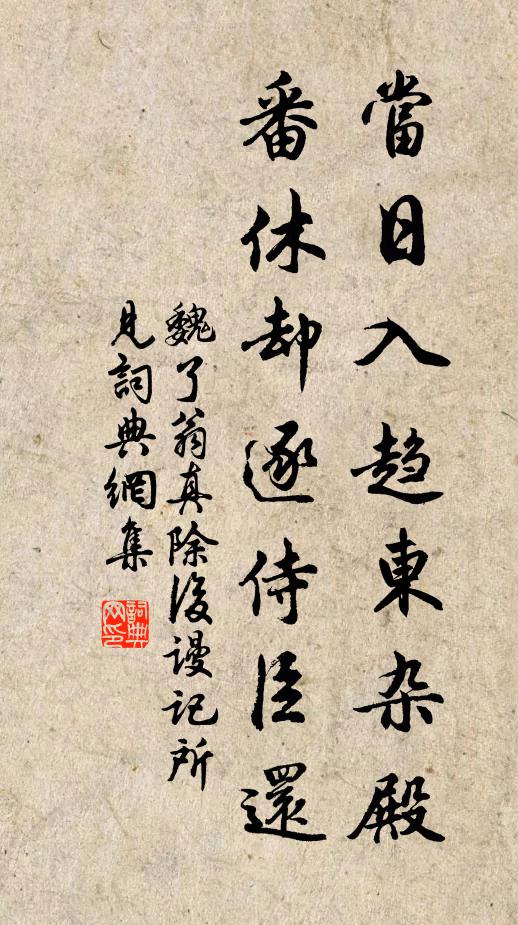 當日入趋東杂殿
番休却逐侍臣還
魏了翁真除後谩记所
見詞典網集
詞典
网印